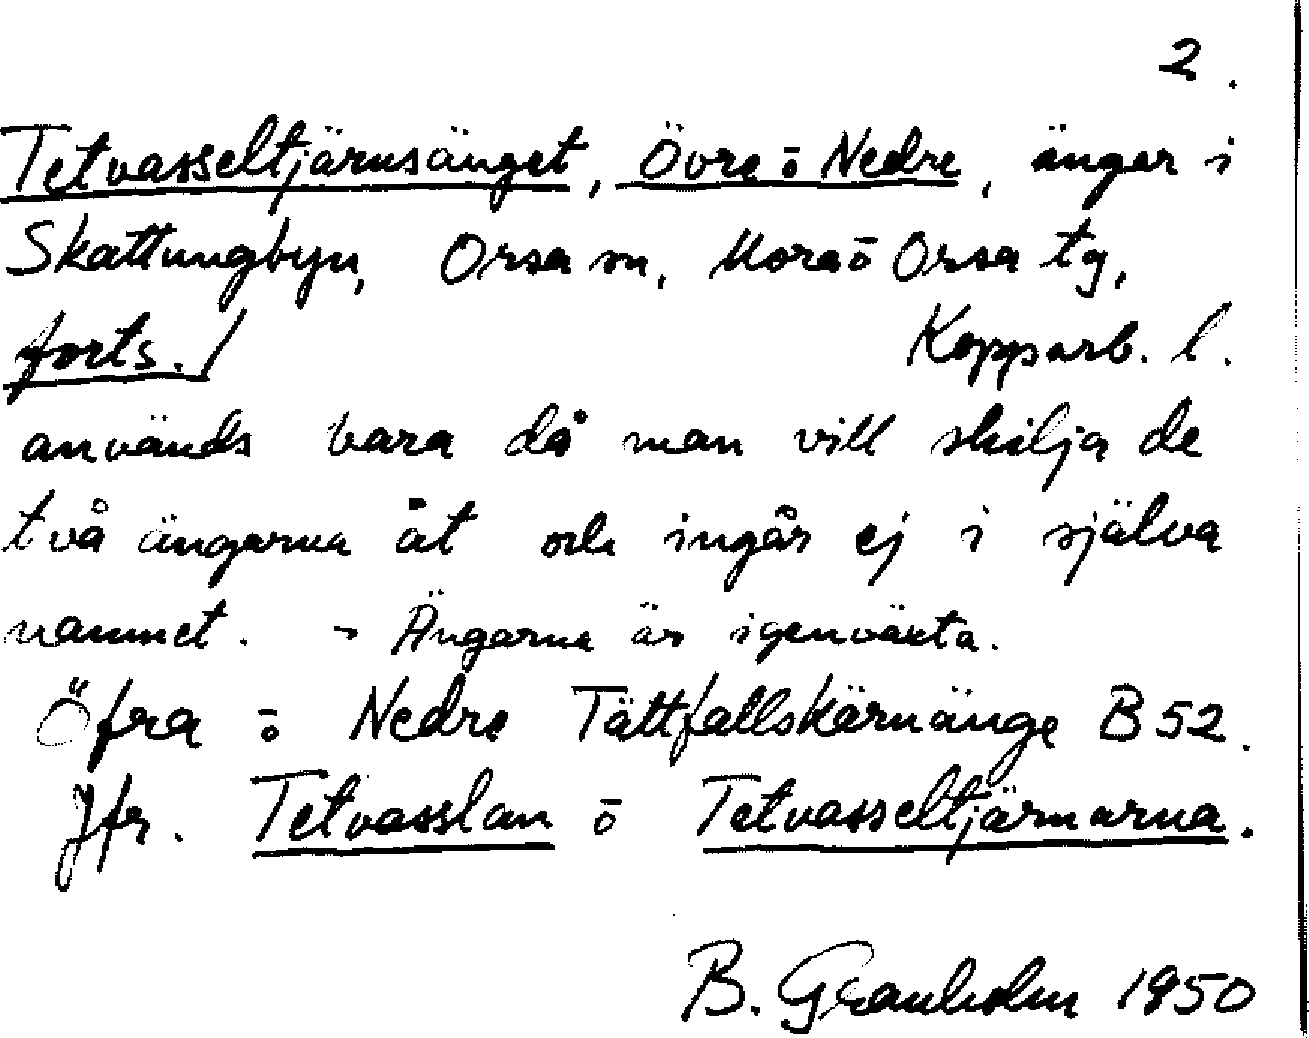 2.
Tetvasseltjärnsänget, Övre o Nedre, ängar i
Skattungbyn, Orsa sn, Mora o Orsa tg,
forts./ Kopparb. l.
används bara då man vill skilja de
två ängarna åt och ingår ej i själva
namnet. - Ängarna är igenväxta.
Öfra o Nedre Tättfallskärnänge B 52.
Jfr. Tetvasslan o Tetvasseltjärnarna.
B. Granholm 1950